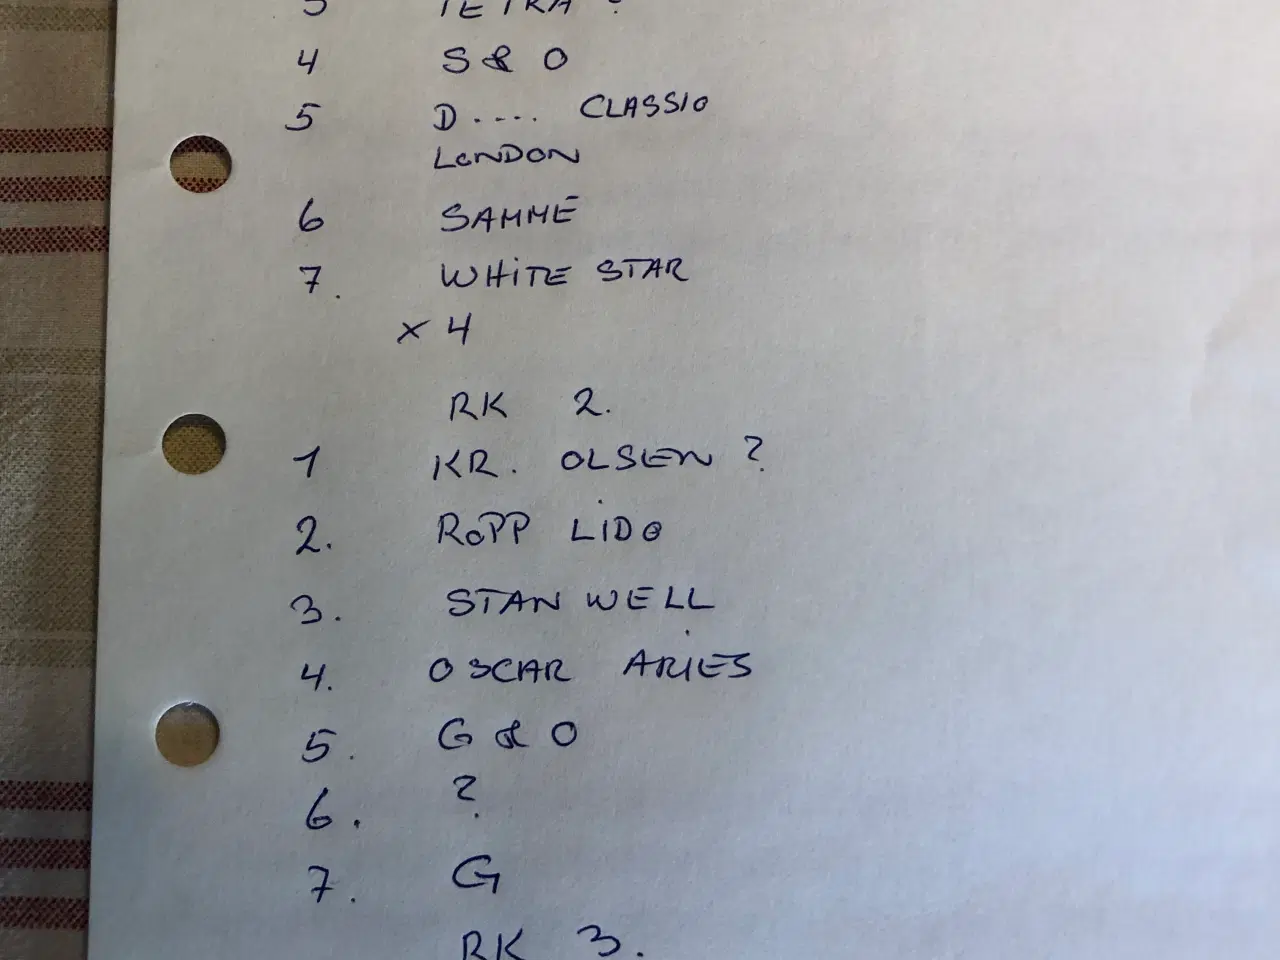 3 TETRA ?
4 S & O
5 D.... CLASSIO
LONDON
6 SAMME
7. WHITE STAR
x 4
RK 2.
1 KR. OLSEN ?
2. ROPP LIDO
3. STANWELL
4. OSCAR ARIES
5. G & O
6. ?
7. G
RK 3.